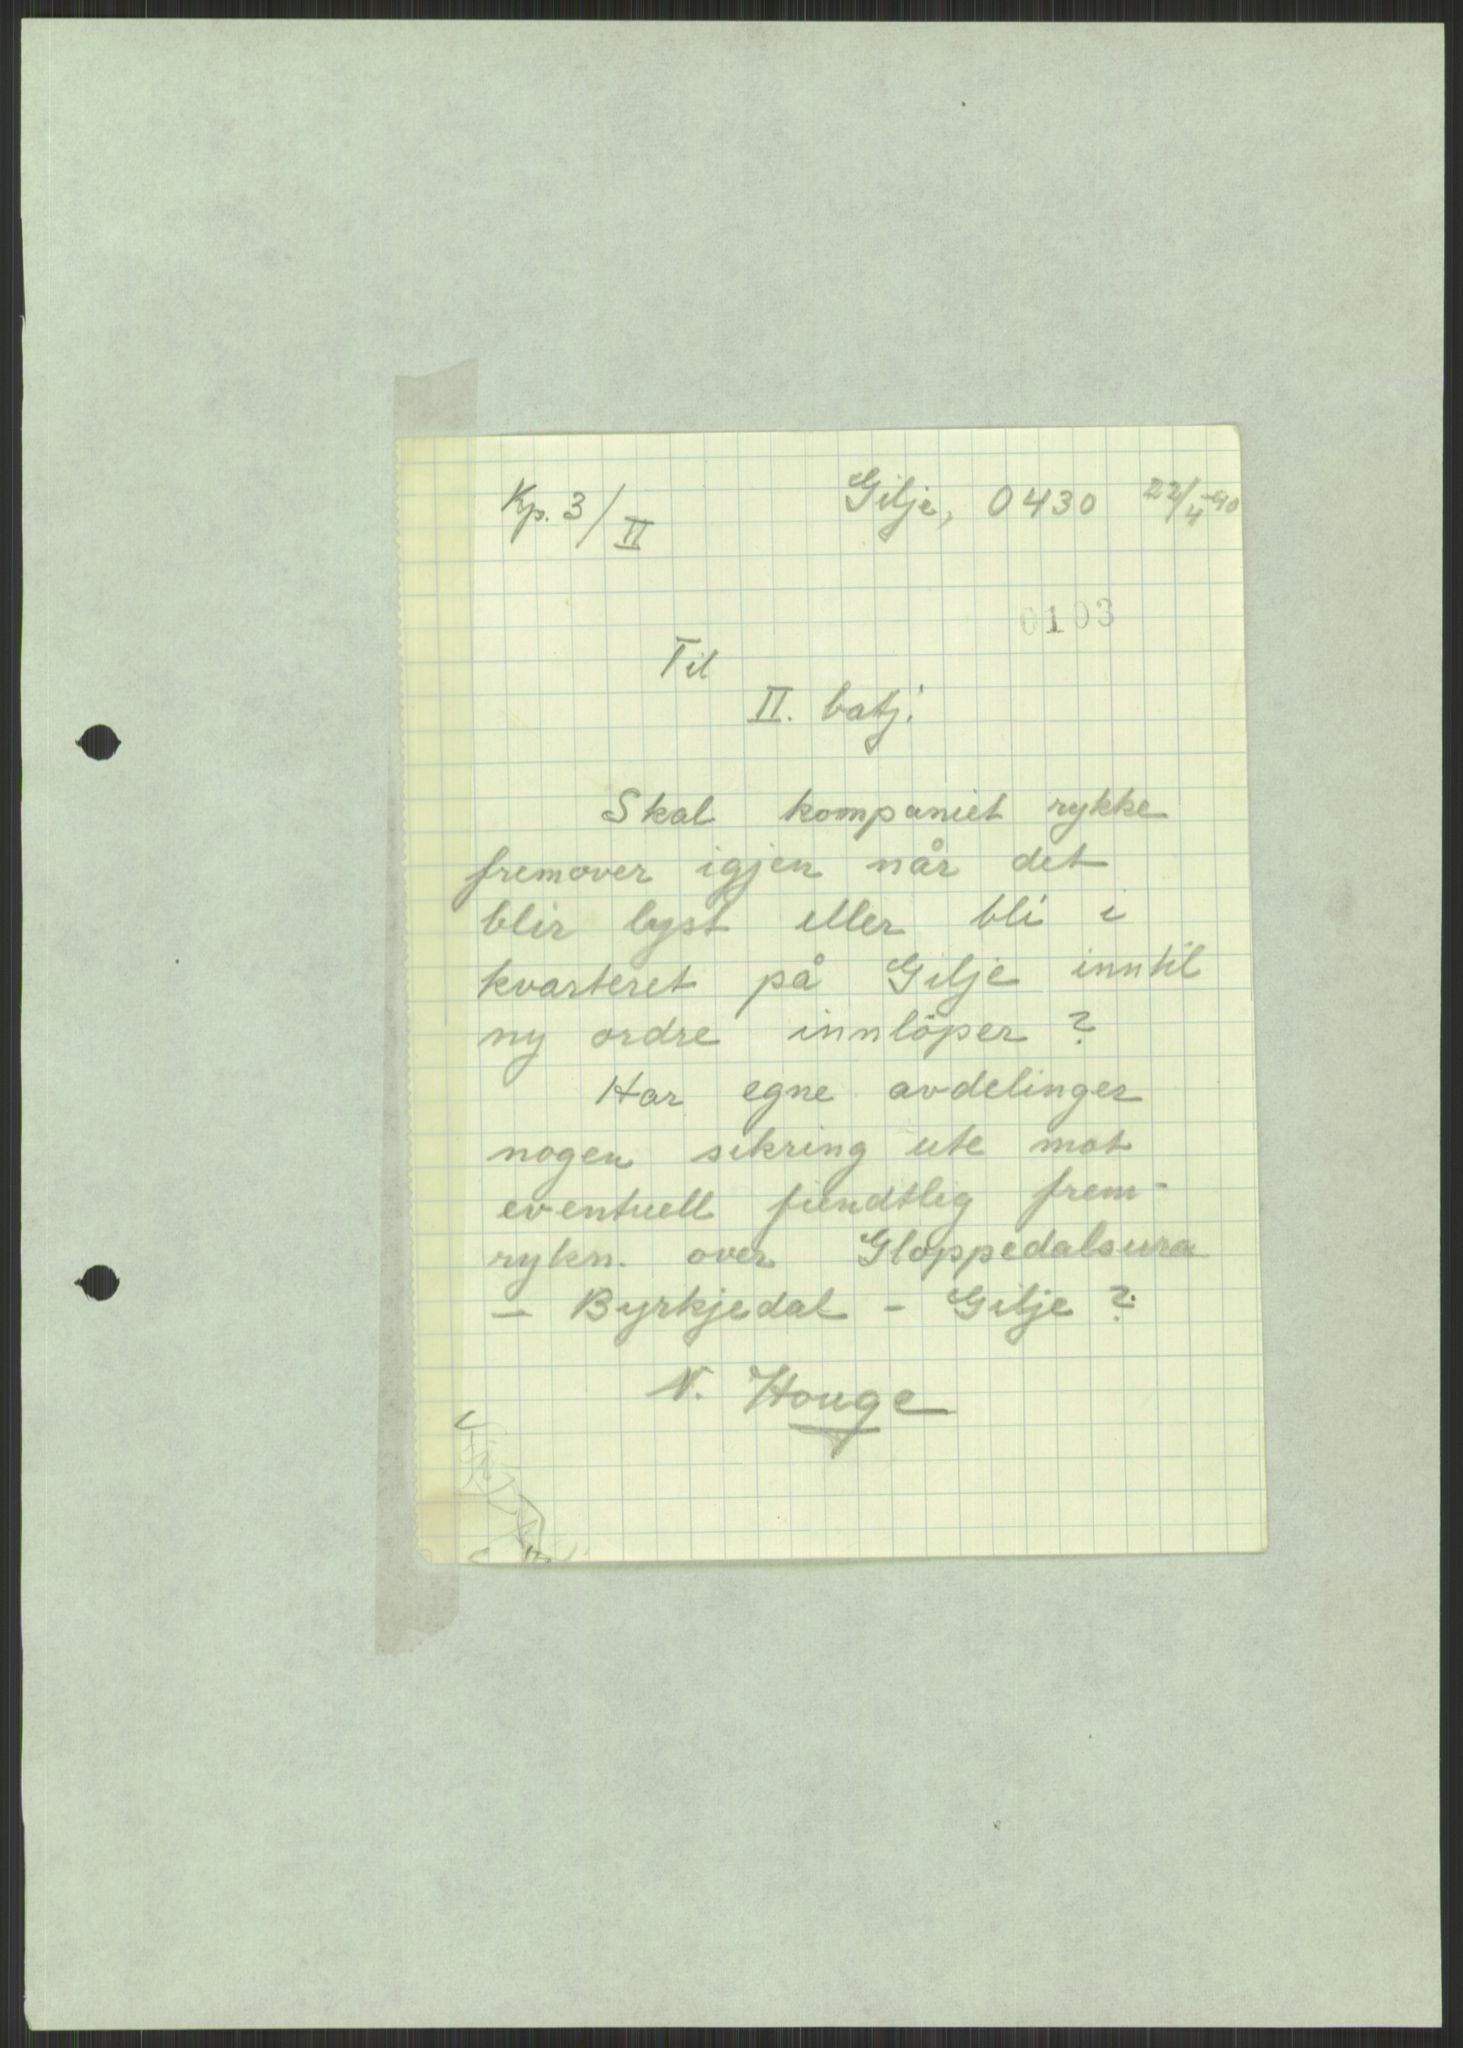 Kp. 3/II
Gilje, 0430 22/4-40
0103
Til
II. batj.
Skal kompaniet rykke
fremover igjen når det
blir lyst eller bli i
kvarteret på Gilje inntil
ny ordre innlöper ?
Har egne avdelinger
nogen sikring ute mot
eventuell fiendtlig frem-
rykn. over Gloppedalsura
- Byrkjedal - Gilje ?
N. Houge